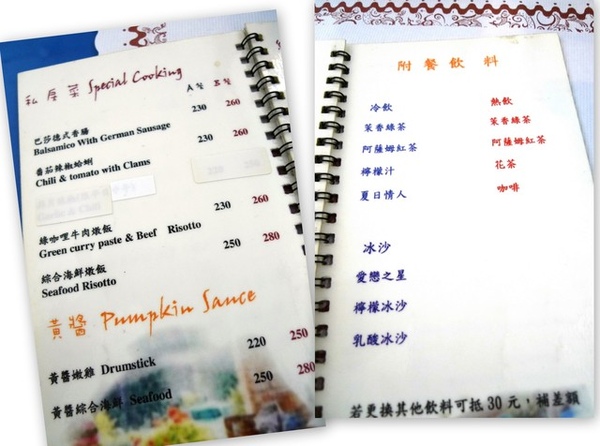 私房菜 Special Cooking
A餐 B餐
巴莎德式香腸 230 260
Balsamico With German Sausage
蕃茄辣椒蛤蜊 230 260
Chili & tomato with Clams
綠咖哩牛肉燉飯 230 260
Green curry paste & Beef Risotto
綜合海鮮燉飯 250 280
Seafood Risotto
黃醬 Pumpkin Sance
黃醬嫩雞 Drumstick 220 250
黃醬綜合海鮮 Seafood 250 280
附餐飲料
冷飲
茉香綠茶
阿薩姆紅茶
檸檬汁
夏日情人
熱飲
茉香綠茶
阿薩姆紅茶
花茶
咖啡
冰沙
愛戀之星
檸檬冰沙
乳酸冰沙
若更換其他飲料可抵30元，補差額